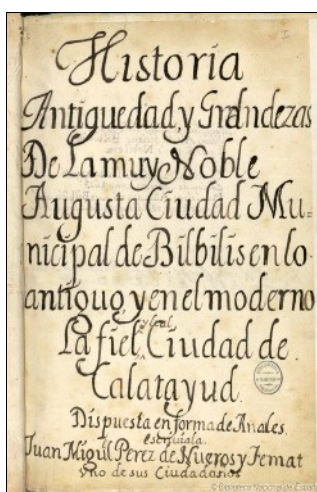 Historia
Antiguedad, y Grandezas
De La muy Noble
Augusta Ciudad Mu=
nicipal de Bilbilis en lo
antiguo, y en el moderno
y Leal
La fiel, Ciudad de
Calatayud.
Dispuesta en forma de Anales.
escriviala.
Juan Miguel Perez de Nueros y Femat
Uno de sus Ciudadanos
© Biblioteca Nacional de España